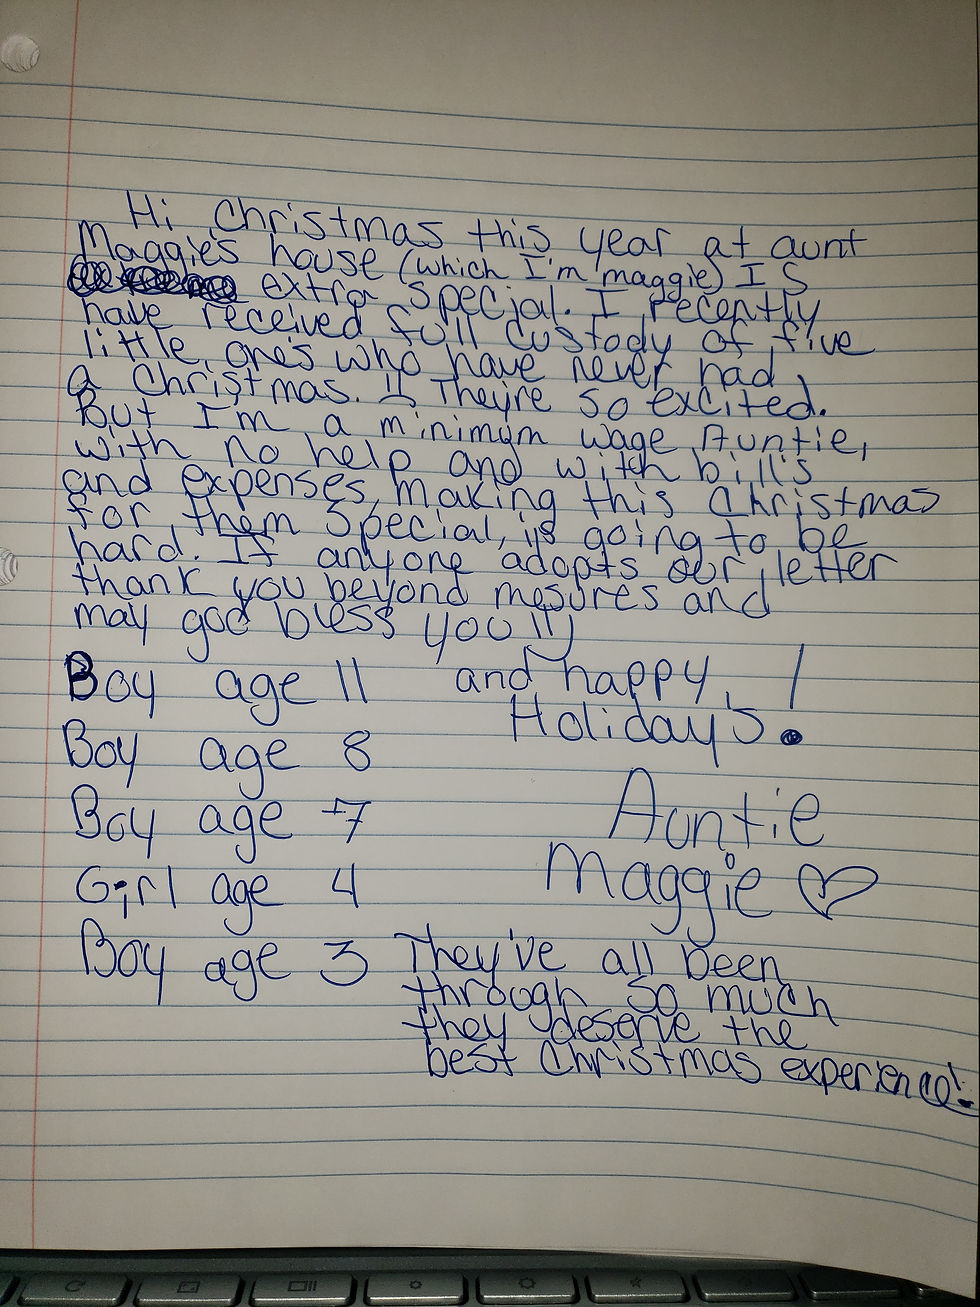 Hi Christmas this year at aunt
Maggie's house (which I'm maggie) IS
extra special. I recently
have received full custody of five
little, one's who have never had
a Christmas. !! They're so excited.
But I'm a minimum wage Auntie,
with no help and with bill's
and expenses, making this Christmas
for them special, is going to be
hard. If anyone adopts our letter
thank you beyond mesures and
may god bless you !!)
Boy age 11
and happy
Holiday's!
Boy age 8
Boy age 7
Auntie
Maggie
Girl age 4
Boy age 3
They've all been
through so much
they deserve the
best Christmas experience!